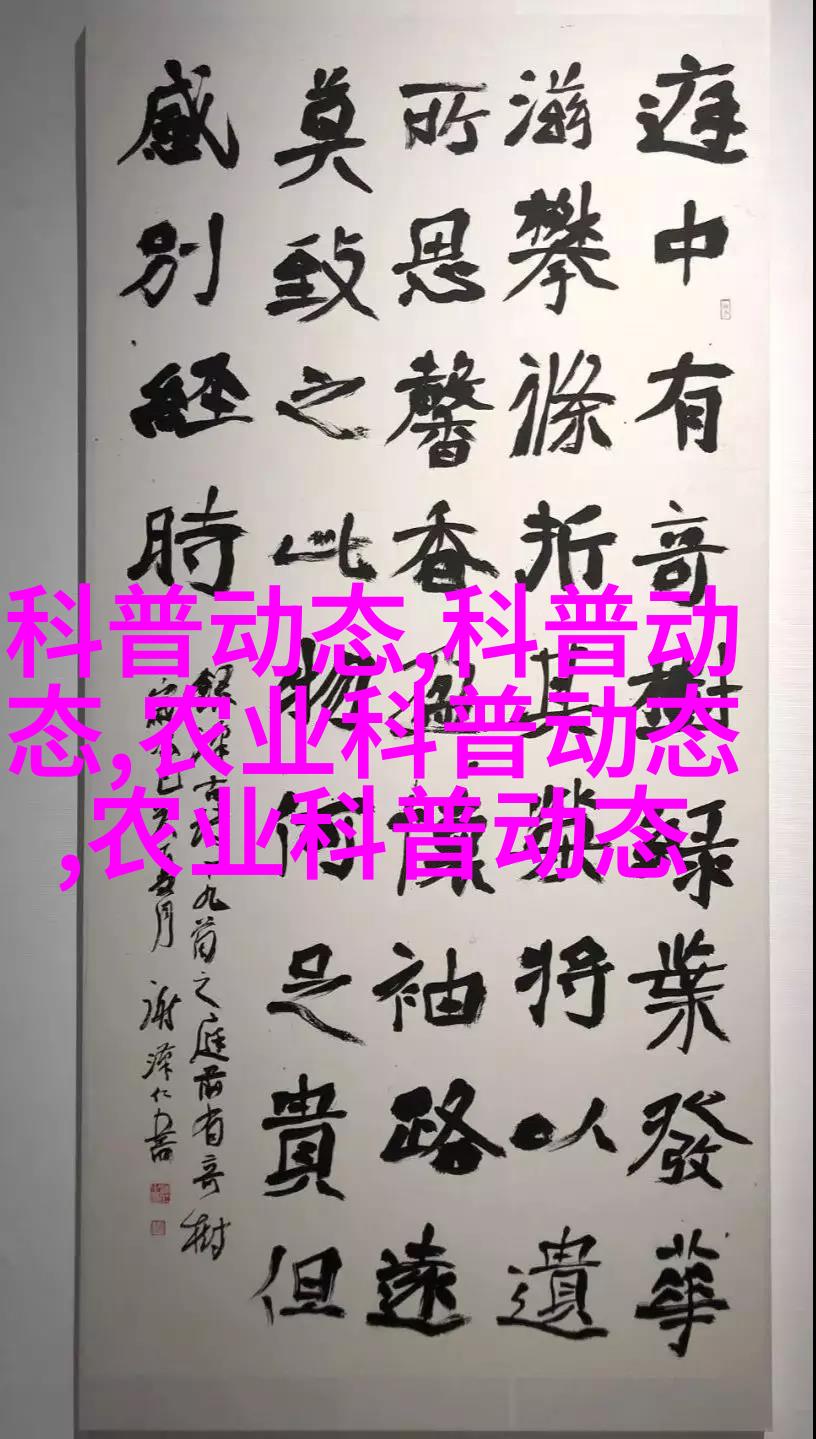 庭中有奇樹緑葉發華
滋攀條折其榮將以遺
所思馨香盈懷袖路遠
莫致之此物何足貴但
感別經時
九首之庭前有奇樹
月 謝澤仁書
科普动态,科普动
态,农业科普动态
,农业科普动态